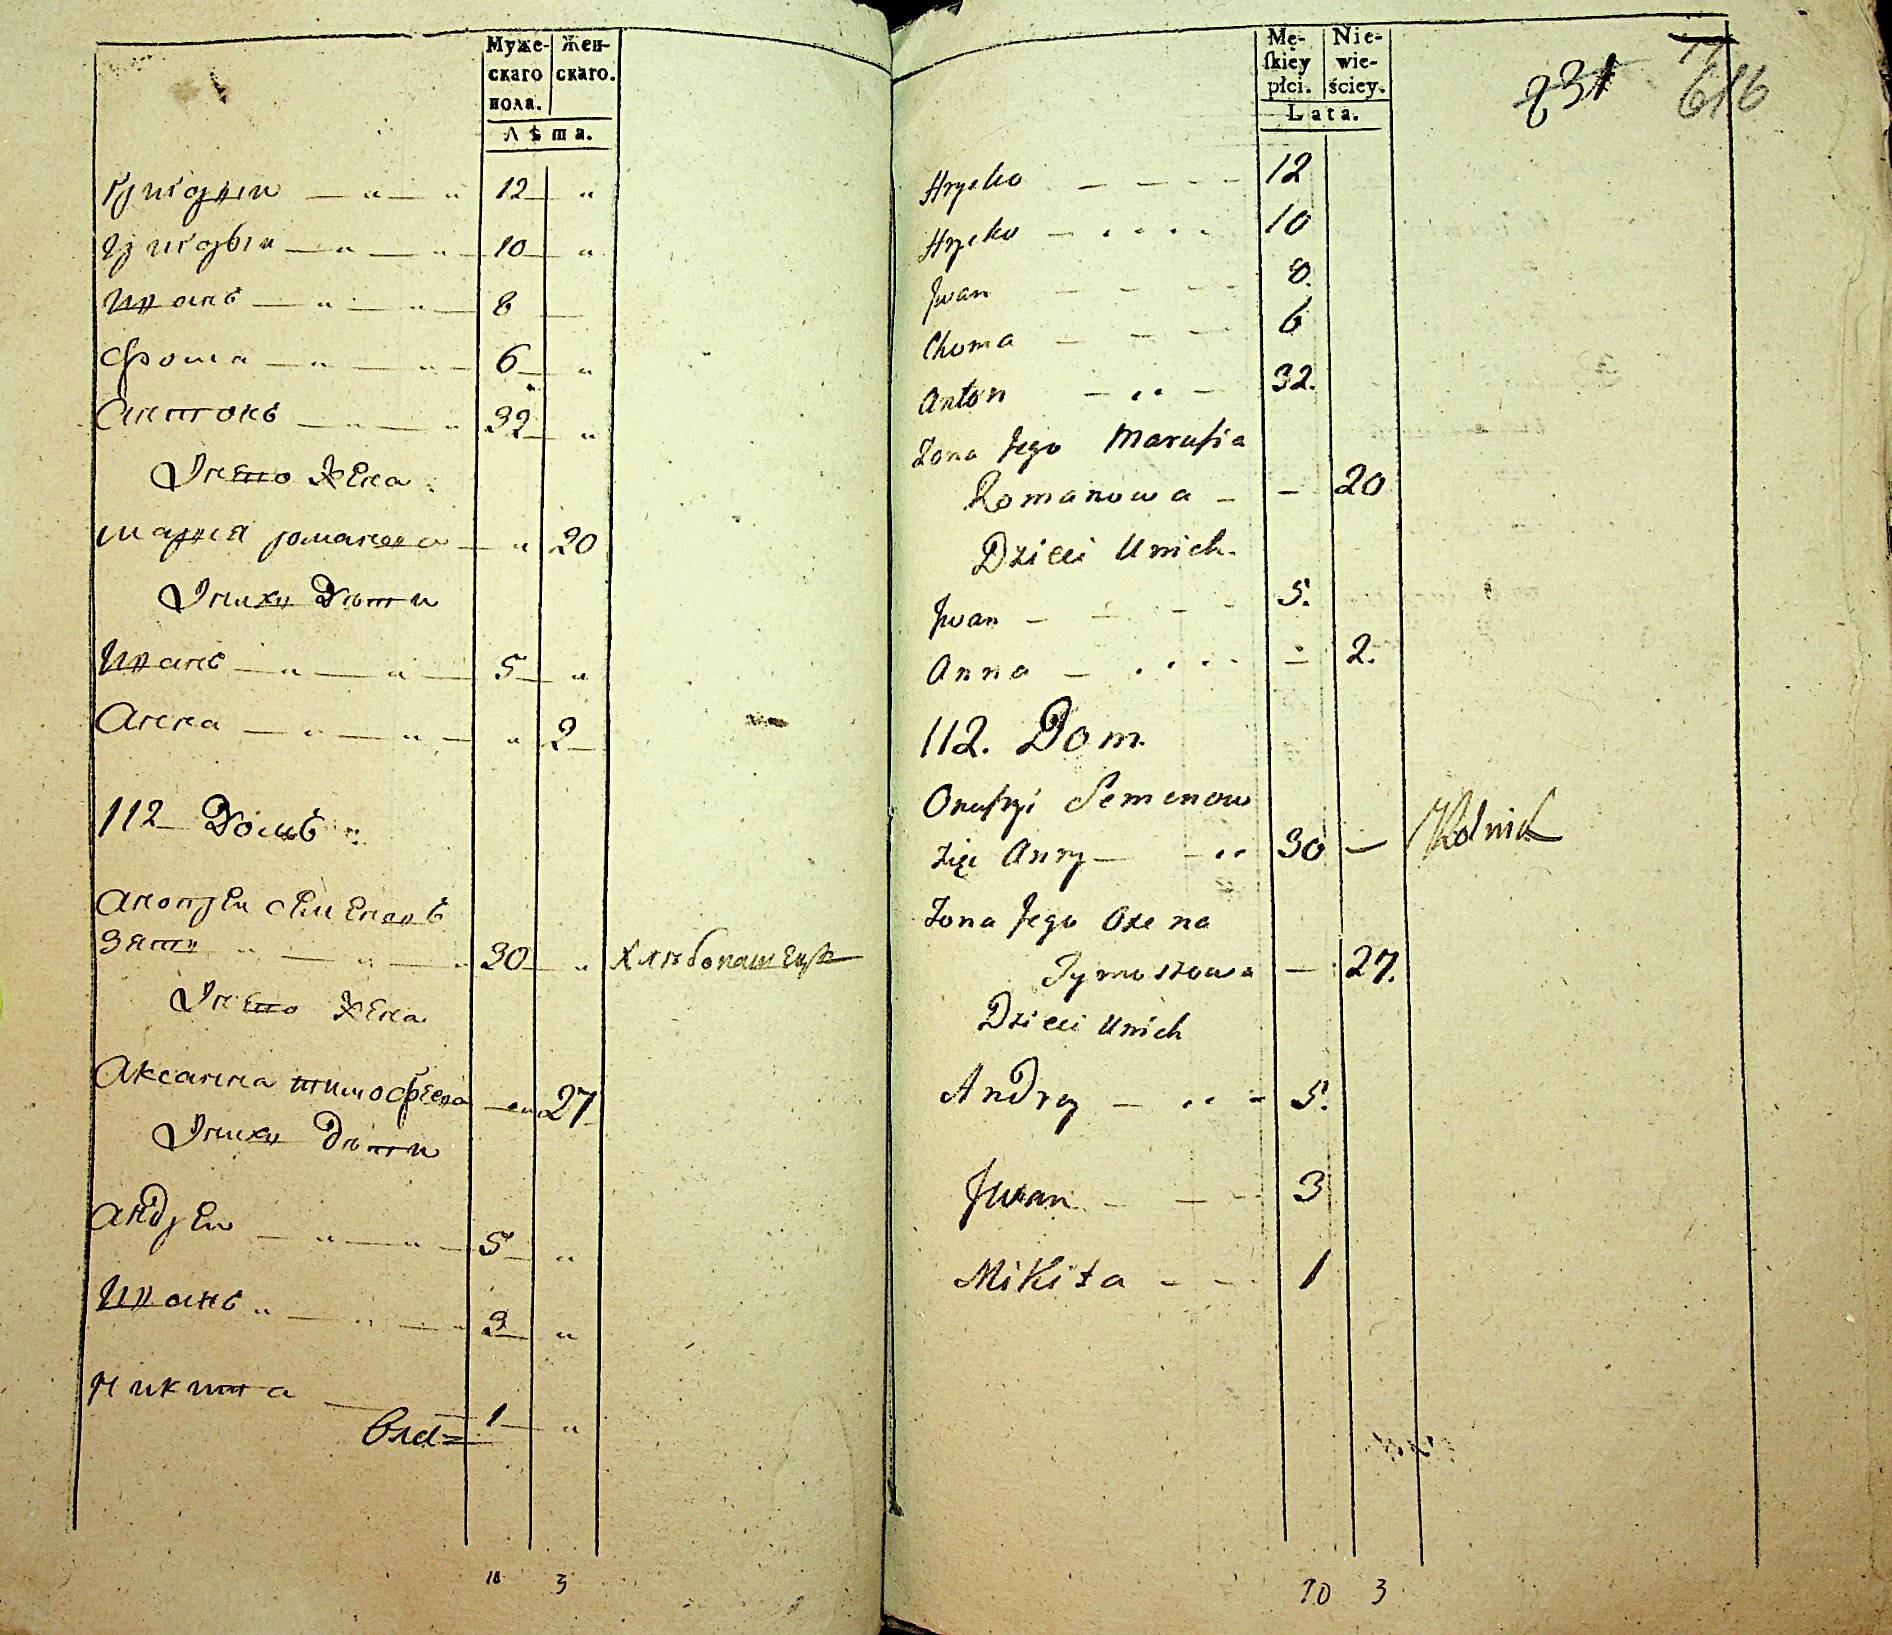 Муже-
скаго
пола.
Жен-
скаго.
Лѣта.
Григорий 12
Григорый 10
Иванъ 8
Фома 6
Антонъ 32
Унего Жена
Марья романова 20
Унихъ Дѣти
Иванъ 5
Анна 2
112 Домъ
Анопрей Семеновъ
Зять 30 Хлѣбопашецъ
Унего Жена
Аксанна тимофеева 27
Унихъ Дѣти
Андрей 5
Иванъ 3
Никита 1
10 3
Mę-
ſkiey
płci.
Nie-
wie-
ściey.
Lata.
231 616
Hryćko 12
Hryćko 10
Jwan 8.
Choma 6
Anton 32.
Żona Jego Marusia
Romanowa 20
Dzieci Unich.
Jwan 5.
Anna 2.
112. Dom.
Onufryi Semenow
Zięć Anny 30 Rolnik
Żona Jego Oxena
Tymoszowa 27.
Dzieci Unich
Andrey 5.
Jwan 3
Mikita 1
10 3